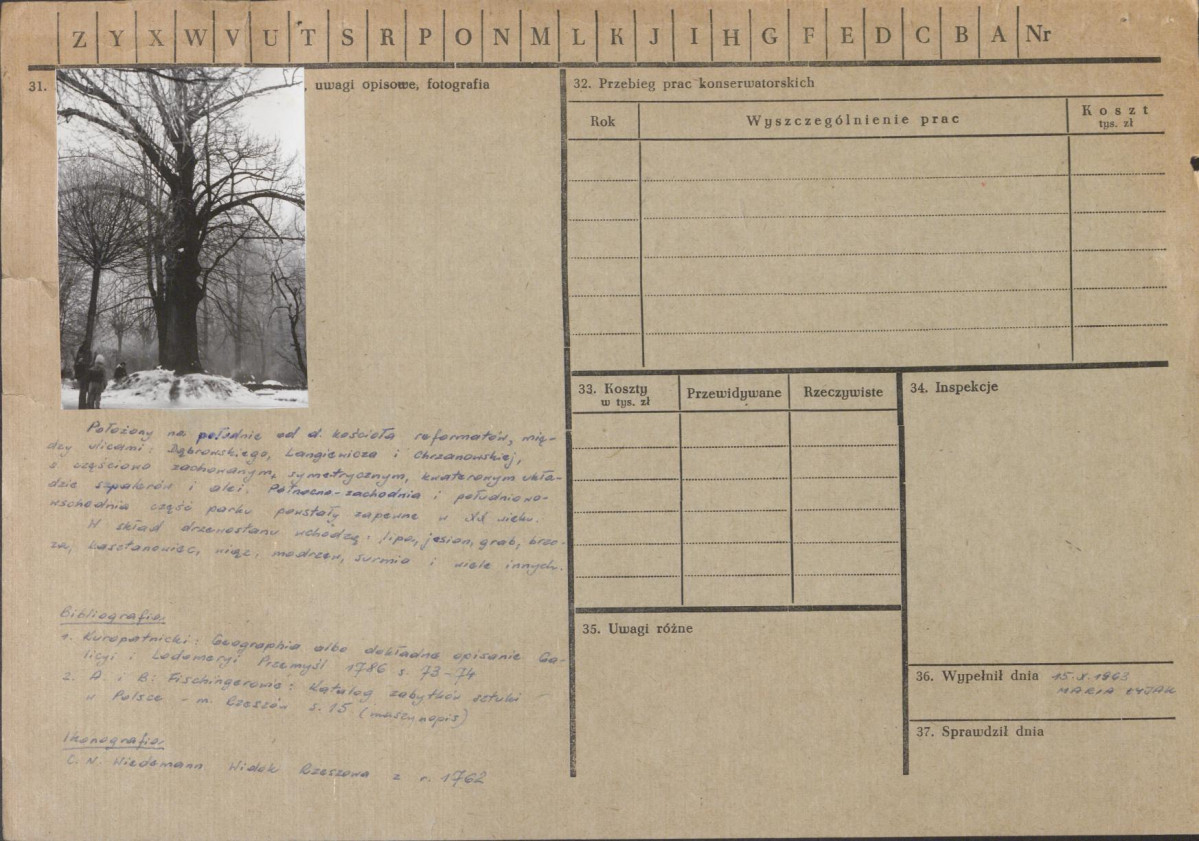 Z Y X W V U T S R P O N M L K J I H G F E D C B A Nr
31. , uwagi opisowe, fotografia
Położony na południe od d. kościoła reformatów, mię-
dzy ulicami: Dąbrowskiego, Langiewicza i Chrzanowskiej,
o częściowo zachowanym, symetrycznym, kwaterowym ukła-
dzie szpalerów i alei. Północno-zachodnia i południowo-
wschodnia część parku powstały zapewne w XX wieku.
W skład drzewostanu wchodzą: lipa, jesion, grab, brzo-
za, kasztanowiec, wiąz, modrzew, surmia i wiele innych.
Bibliografia:
1. Kuropatnicki: Geographia albo dokładne opisanie Ga-
licyi i Lodomeryi Przemyśl 1786 s. 73-74
2. A. i B. Fischingerowie: Katalog zabytków sztuki
w Polsce - m. Rzeszów s. 15 (maszynopis)
Ikonografia:
C. N. Wiedemann Widok Rzeszowa z r. 1762
32. Przebieg prac konserwatorskich
Rok
Wyszczególnienie prac
Koszt
tys. zł
33. Koszty
w tys. zł
Przewidywane
Rzeczywiste
34. Inspekcje
35. Uwagi różne
36. Wypełnił dnia 15.X.1968
MARIA
37. Sprawdził dnia